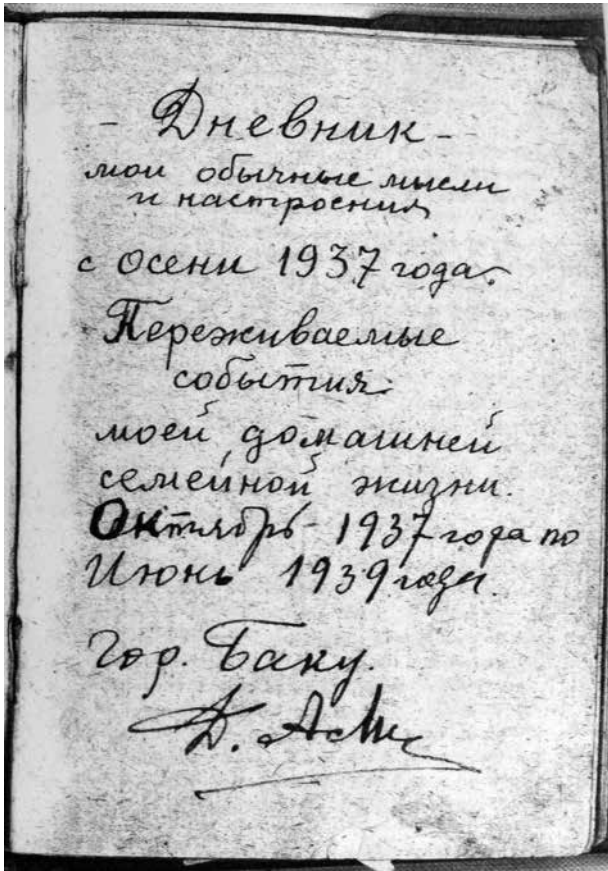 - Дневник -
мои обычные мысли
и настроения
с осени 1937 года.
Переживаемые
события
моей домашней
семейной жизни.
Октябрь 1937 года по
Июнь 1939 года.
гор. Баку.
Д.